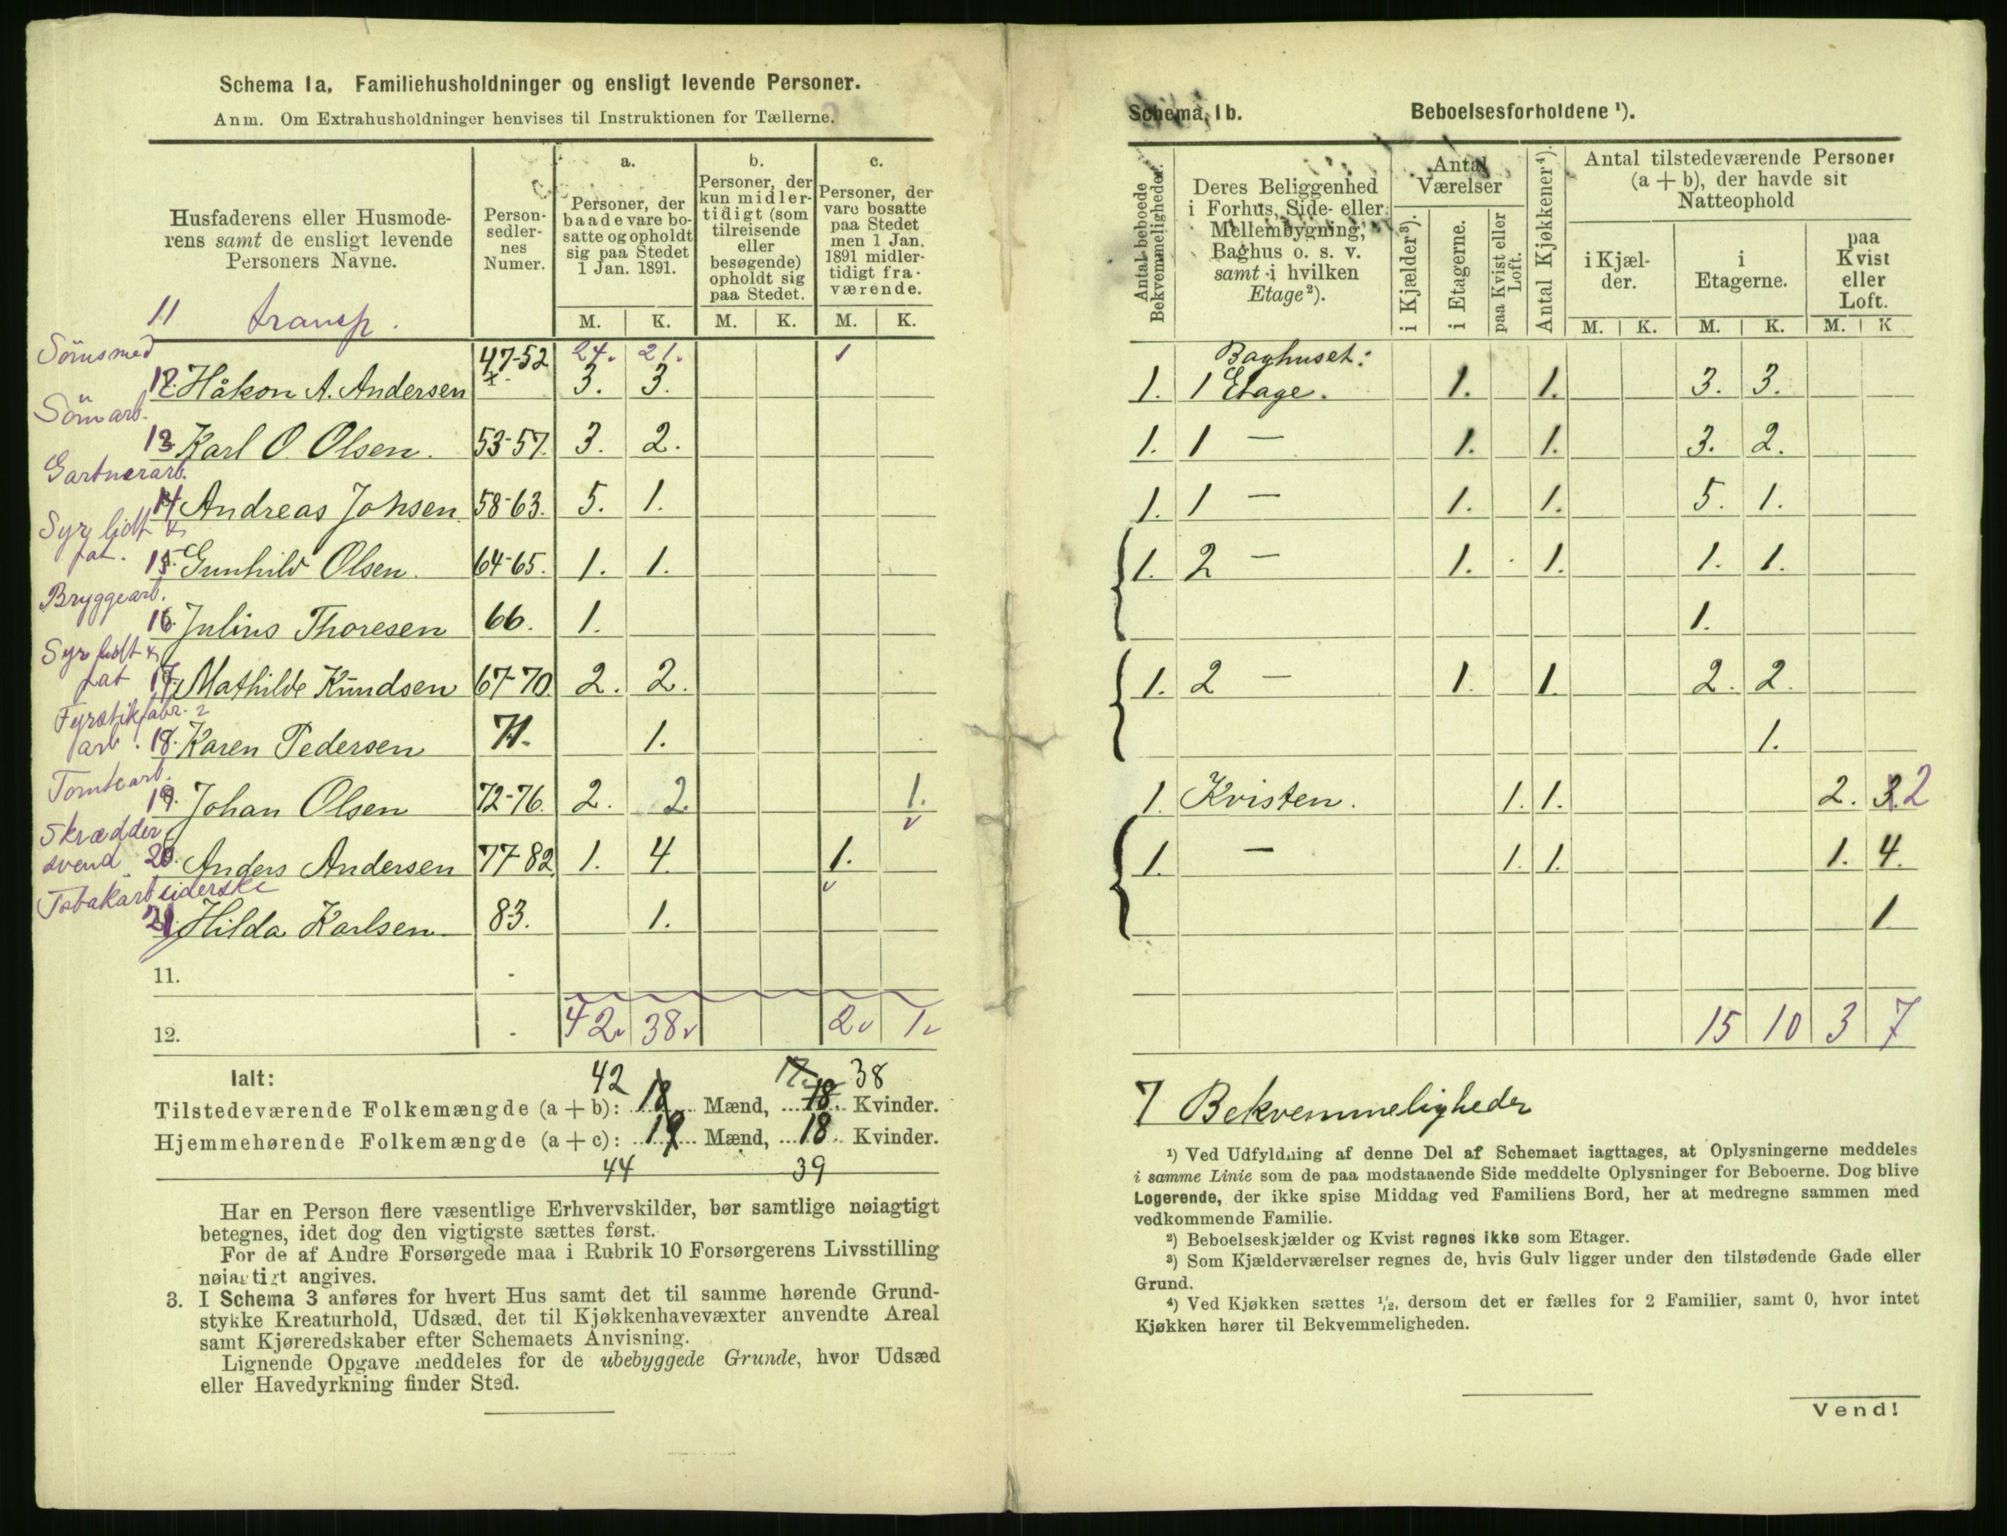 Schema 1a. Familiehusholdninger og ensligt levende Personer.
Anm. Om Extrahusholdninger henvises til Instruktionen for Tællerne.
Husfaderens eller Husmoderens samt de ensligt levende Personers Navne.
Person-sedler-nes Numer.
a. Personer, der baade vare bosatte og opholdt sig paa Stedet 1 Jan. 1891.
b. Personer, der kun midlertidigt (som tilreisende eller besøgende) opholdt sig paa Stedet.
c. Personer, der vare bosatte paa Stedet men 1 Jan. 1891 midlertidigt fraværende.
M. K. M. K. M. K.
11 transp. 24. 21. 1
Sömsmed
12. Håkon A. Andersen 47-52 3. 3.
Sömarb.
13 Karl O. Olsen. 53-57. 3. 2.
Gartnerarb.
14 Andreas Johsen 58-63. 5. 1.
Syr lidt &
fat. 15. Gunhild Olsen. 64-65. 1. 1.
Bryggearb.
16. Julius Thoresen 66. 1.
Syr lidt &
fat 17. Mathilde Knudsen 67-70. 2. 2.
Fyrstikfabr.
arb. 18. Karen Pedersen 71. 1.
Tomtearb.
19. Johan Olsen 72-76. 2. 2. 1.
Skrædder
svend. 20. Anders Andersen 77-82 1. 4. 1.
Tobakarbeiderske
21. Hilda Karlsen 83. 1.
11.
12. 42 38 2 1
Ialt: 42 17 38
Tilstedeværende Folkemængde (a + b): 18 Mænd, 18 Kvinder.
Hjemmehørende Folkemængde (a + c): 19 Mænd, 18 Kvinder.
44 39
Har en Person flere væsentlige Erhvervskilder, bør samtlige nøiagtigt
betegnes, idet dog den vigtigste sættes først.
For de af Andre Forsørgede maa i Rubrik 10 Forsørgerens Livsstilling
nøiagtigt angives.
3. I Schema 3 anføres for hvert Hus samt det til samme hørende Grund-
stykke Kreaturhold, Udsæd, det til Kjøkkenhavevæxter anvendte Areal
samt Kjøreredskaber efter Schemaets Anvisning.
Lignende Opgave meddeles for de ubebyggede Grunde, hvor Udsæd
eller Havedyrkning finder Sted.
Schema 1b. Beboelsesforholdene ¹).
Antal beboede Bekvemmeligheder.
Deres Beliggenhed i Forhus, Side- eller Mellembygning, Baghus o. s. v. samt i hvilken Etage²).
Antal Værelser
i Kjælder³).
i Etagerne.
paa Kvist eller Loft.
Antal Kjøkkener⁴).
Antal tilstedeværende Personer (a + b), der havde sit Natteophold
i Kjælder.
i Etagerne.
paa Kvist eller Loft.
M. K. M. K. M. K
Baghuset:
1. 1 Etage. 1. 1. 3. 3.
1. 1 — 1. 1. 3. 2.
1. 1 — 1. 1. 5. 1.
1. 2 — 1. 1. 1. 1.
1.
1. 2 — 1. 1. 2. 2.
1.
1. Kvisten. 1. 1. 2. 3 2
1. — 1. 1. 1. 4.
1.
15 10 3 7
7 Bekvemmeligheder
¹) Ved Udfyldning af denne Del af Schemaet iagttages, at Oplysningerne meddeles
i samme Linie som de paa modstaaende Side meddelte Oplysninger for Beboerne. Dog blive
Logerende, der ikke spise Middag ved Familiens Bord, her at medregne sammen med
vedkommende Familie.
²) Beboelseskjælder og Kvist regnes ikke som Etager.
³) Som Kjælderværelser regnes de, hvis Gulv ligger under den tilstødende Gade eller
Grund.
⁴) Ved Kjøkken sættes ½, dersom det er fælles for 2 Familier, samt 0, hvor intet
Kjøkken hører til Bekvemmeligheden.
Vend!